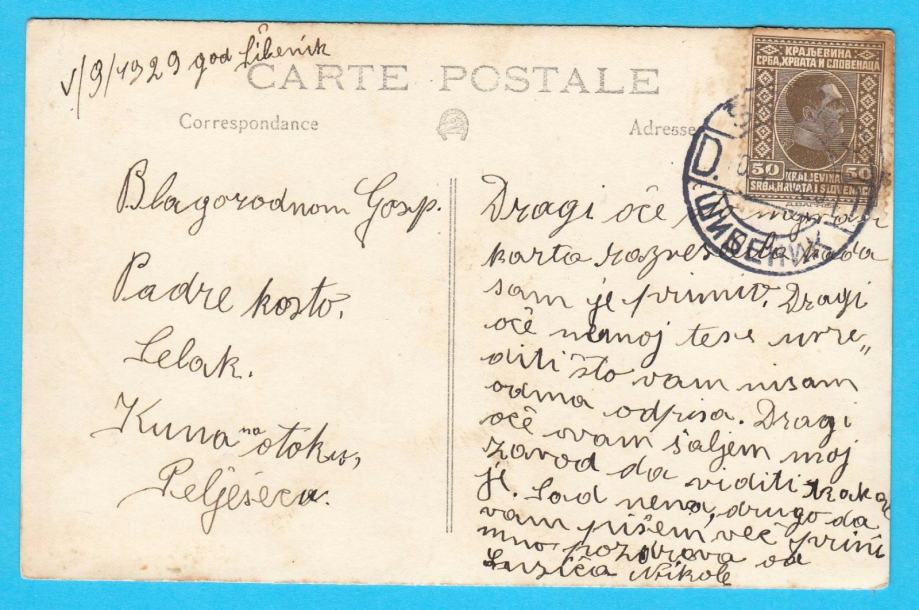 V/9/1929 god Šibenik
CARTE POSTALE
Correspondance
Adresse
КРАЉЕВИНА
СРБА, ХРВАТА И СЛОВЕНАЦА
50 50
KRALJEVINA
SRBA, HRVATA I SLOVENACA
D.
ШИБЕНИК
Blagorodnom Gosp.
Padre kosto.
Selak.
Kuna na otoku,
Pelješecu.
Dragi oče
karta kada
sam je primiv. Dragi
oče nemoj tese uvre„
diti što vam nisam
odma odpisa. Dragi
oče ovam šaljem moj
zavod da viditi kaka
je. Sad nema, drugo da
vam pišem, več primi
mno, pozdrava od
Nikole